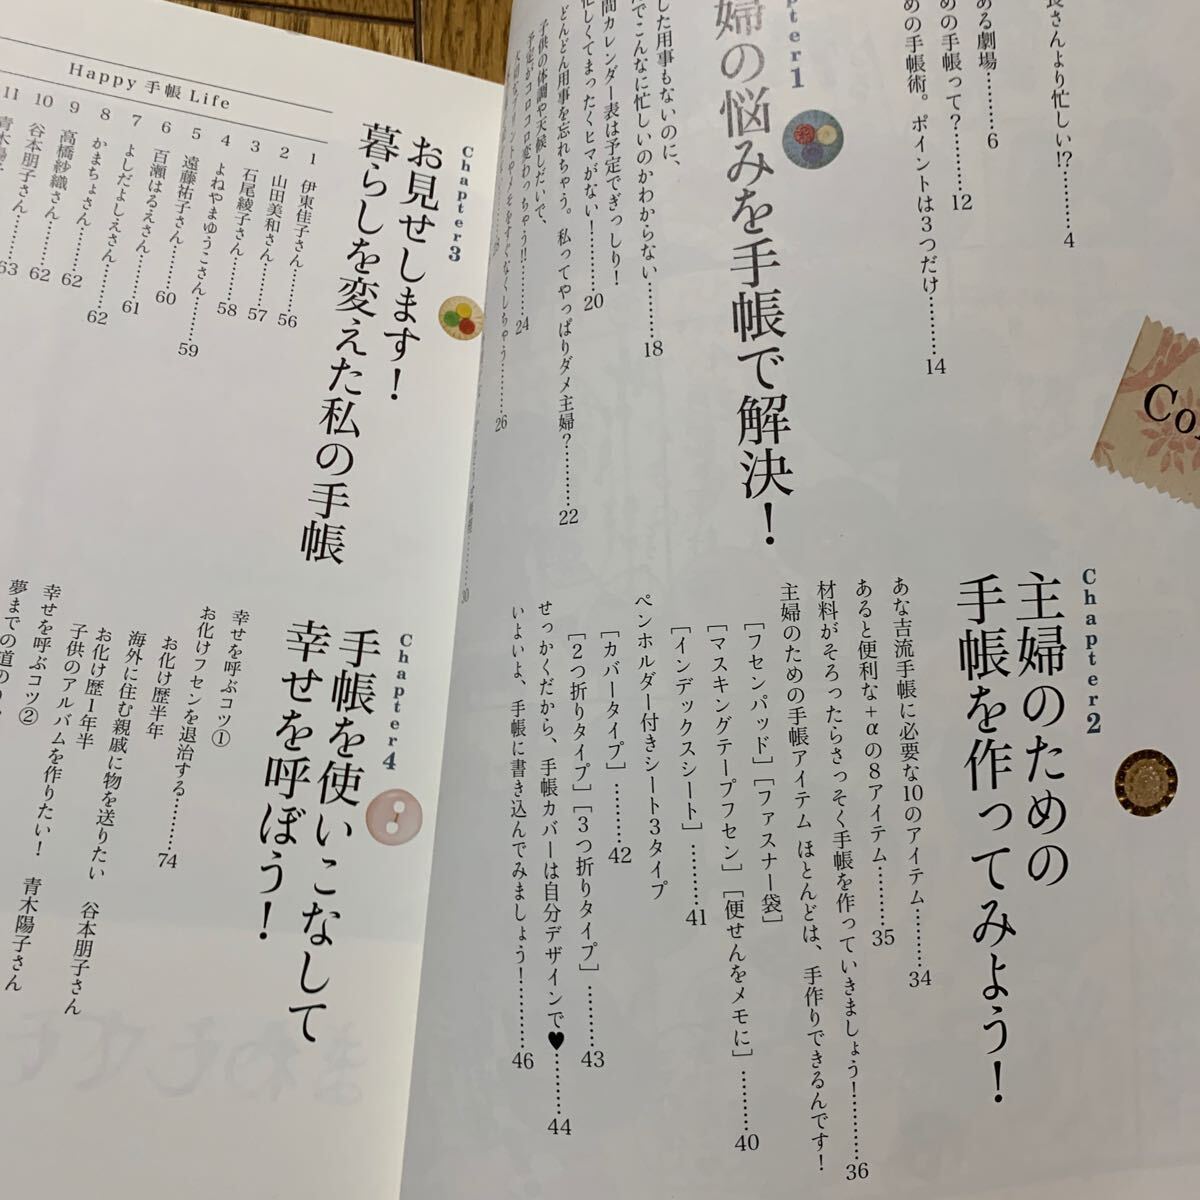 長さんより忙しい!?………4
ある劇場………6
めの手帳って?………12
めの手帳術。ポイントは3つだけ………14
pter1
婦の悩みを手帳で解決!
した用事もないのに、
でこんなに忙しいのかわからない………18
間カレンダー表は予定でぎっしり!
忙しくてまったくヒマがない!………20
どんどん用事を忘れちゃう。私ってやっぱりダメ主婦?………22
子供の体調や天候しだいで、
予定がコロコロ変わっちゃう!!………24
26
30
Co
Chapter2
主婦のための
手帳を作ってみよう!
あな吉流手帳に必要な10のアイテム………34
あると便利な+αの8アイテム………35
材料がそろったらさっそく手帳を作っていきましょう!………36
主婦のための手帳アイテム ほとんどは、手作りできるんです!
[フセンパッド][ファスナー袋]
[マスキングテープフセン][便せんをメモに]………40
[インデックスシート]………41
ペンホルダー付きシート3タイプ
[カバータイプ]………42
[2つ折りタイプ][3つ折りタイプ]………43
せっかくだから、手帳カバーは自分デザインで♥………44
いよいよ、手帳に書き込んでみましょう!………46
Happy 手帳 Life
Chapter3
お見せします!
暮らしを変えた私の手帳
1 伊東佳子さん………56
2 山田美和さん………57
3 石尾綾子さん………58
4 よねやまゆうこさん………59
5 遠藤祐子さん………60
6 百瀬はるえさん………61
7 よしだよしえさん………62
8 かまちょさん………62
9 高橋紗織さん………62
10 谷本朋子さん………63
11 青木陽子
Chapter4
手帳を使いこなして
幸せを呼ぼう!
幸せを呼ぶコツ①
お化けフセンを退治する………74
お化け歴半年
海外に住む親戚に物を送りたい 谷本朋子さん
お化け歴1年半
子供のアルバムを作りたい! 青木陽子さん
幸せを呼ぶコツ②
夢までの道の